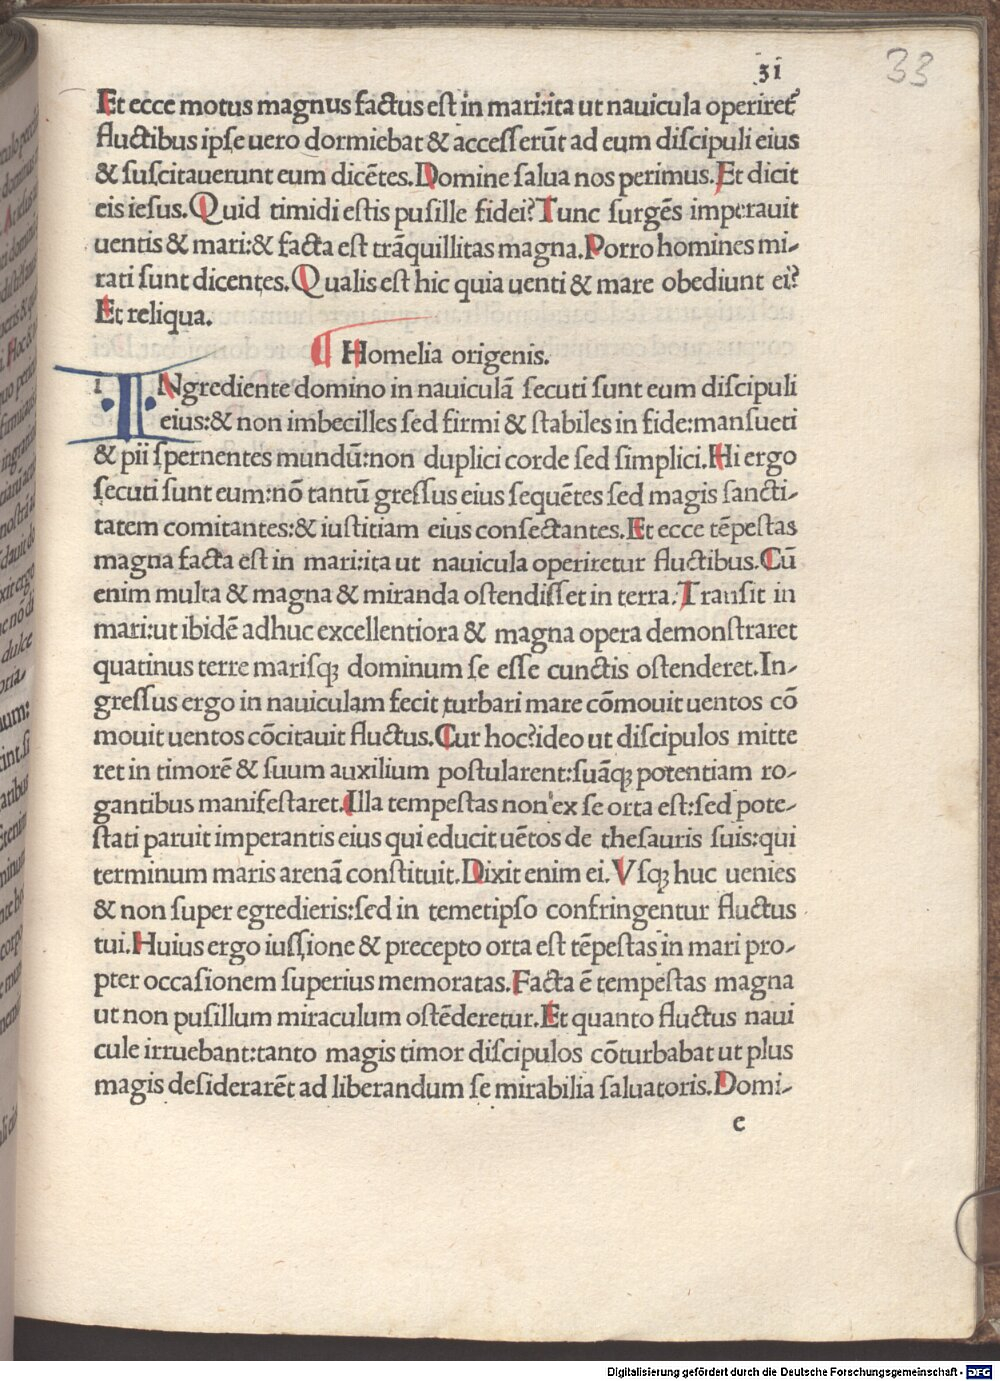 31
33
Et ecce motus magnus factus est in mari:ita ut nauicula operiret᷑
fluctibus ipse uero dormiebat & accesserūt ad eum discipuli eius
& suscitauerunt eum dicētes.Domine salua nos perimus.Et dicit
eis iesus.Quid timidi estis pusille fidei?Tunc surgēs imperauit
uentis & mari:& facta est trāquillitas magna.Porro homines mi-
rati sunt dicentes.Qualis est hic quia uenti & mare obediunt ei?
Et reliqua.
¶ Homelia origenis.
INgrediente domino in nauiculā secuti sunt eum discipuli
eius:& non imbecilles sed firmi & stabiles in fide:mansueti
& pii spernentes mundū:non duplici corde sed simplici.Hi ergo
secuti sunt eum:nō tantū gressus eius sequētes sed magis sancti-
tatem comitantes:& iustitiam eius consectantes.Et ecce tēpestas
magna facta est in mari:ita ut nauicula operiretur fluctibus.Cū
enim multa & magna & miranda ostendisset in terra.Transit in
mari:ut ibidē adhuc excellentiora & magna opera demonstraret
quatinus terre marisqꝫ dominum se esse cunctis ostenderet.In-
gressus ergo in nauiculam fecit turbari mare cōmouit uentos cō
mouit uentos cōcitauit fluctus.Cur hoc?ideo ut discipulos mitte
ret in timorē & suum auxilium postularent:suāqꝫ potentiam ro-
gantibus manifestaret.Illa tempestas non ex se orta est:sed pote-
stati paruit imperantis eius qui educit uētos de thesauris suis:qui
terminum maris arenā constituit.Dixit enim ei.Vsqꝫ huc uenies
& non super egredieris:sed in temetipso confringentur fluctus
tui.Huius ergo iussione & precepto orta est tēpestas in mari pro-
pter occasionem superius memoratas.Facta ē tempestas magna
ut non pusillum miraculum ostēderetur.Et quanto fluctus naui
cule irruebant:tanto magis timor discipulos cōturbabat ut plus
magis desiderarēt ad liberandum se mirabilia saluatoris.Domi-
c
Digitalisierung gefördert durch die Deutsche Forschungsgemeinschaft - DFG